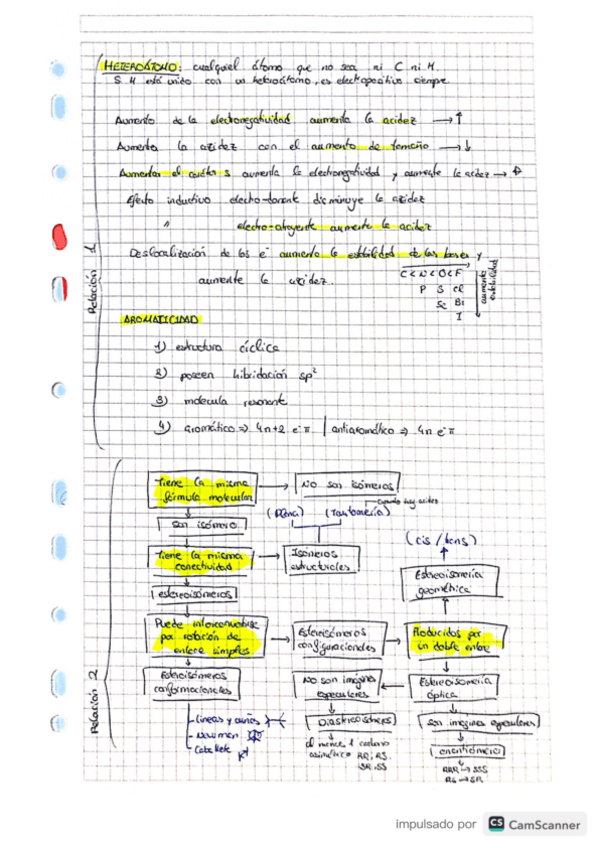 HETEROÁTOMO: cualquier átomo que no sea ni C ni H.
S. H está unido con un heteroátomo, es electropositivo siempre
Aumento de la electronegatividad aumenta la acidez → ↑
Aumenta la acidez con el aumento de tamaño → ↓
Aumentar el carácter s aumenta la electronegatividad y aumenta la acidez →
Efecto inductivo electro-donante disminuye la acidez
" electro-atrayente aumenta la acidez
Deslocalización de los e⁻ aumenta la estabilidad de las bases y
aumenta la acidez.
C < N < O < F
P S Cl
Se Br
I
aumenta estabilidad
Relación 1
AROMATICIDAD
1) estructura cíclica
2) poseen hibridación sp²
3) molecula resonante
4) aromático ⇒ 4n+2 e⁻π | antiaromático ⇒ 4n e⁻π
Relación 2
Tiene la misma
fórmula molecular
No son isómeros
Son isómero
(Tautomería)
(cis/trans)
Tiene la misma
conectividad
Isómeros
estructurales
Estereoisomería
geométrica
estereoisómeros
Puede interconvertirse
por rotación de
enlace simples
Estereoisómeros
configuracionales
Producidos por
un doble enlace
Estereoisómeros
conformacionales
No son imágenes
especulares
Estereoisomería
óptica
Líneas y cuñas
Newman
Caballete
Diastereoisómeros
al menos 1 carbono
asimétrico RR, RS,
SR, SS
Son imagenes especulares
enantiómero
RRR → SSS
RS → SR
impulsado por CS CamScanner